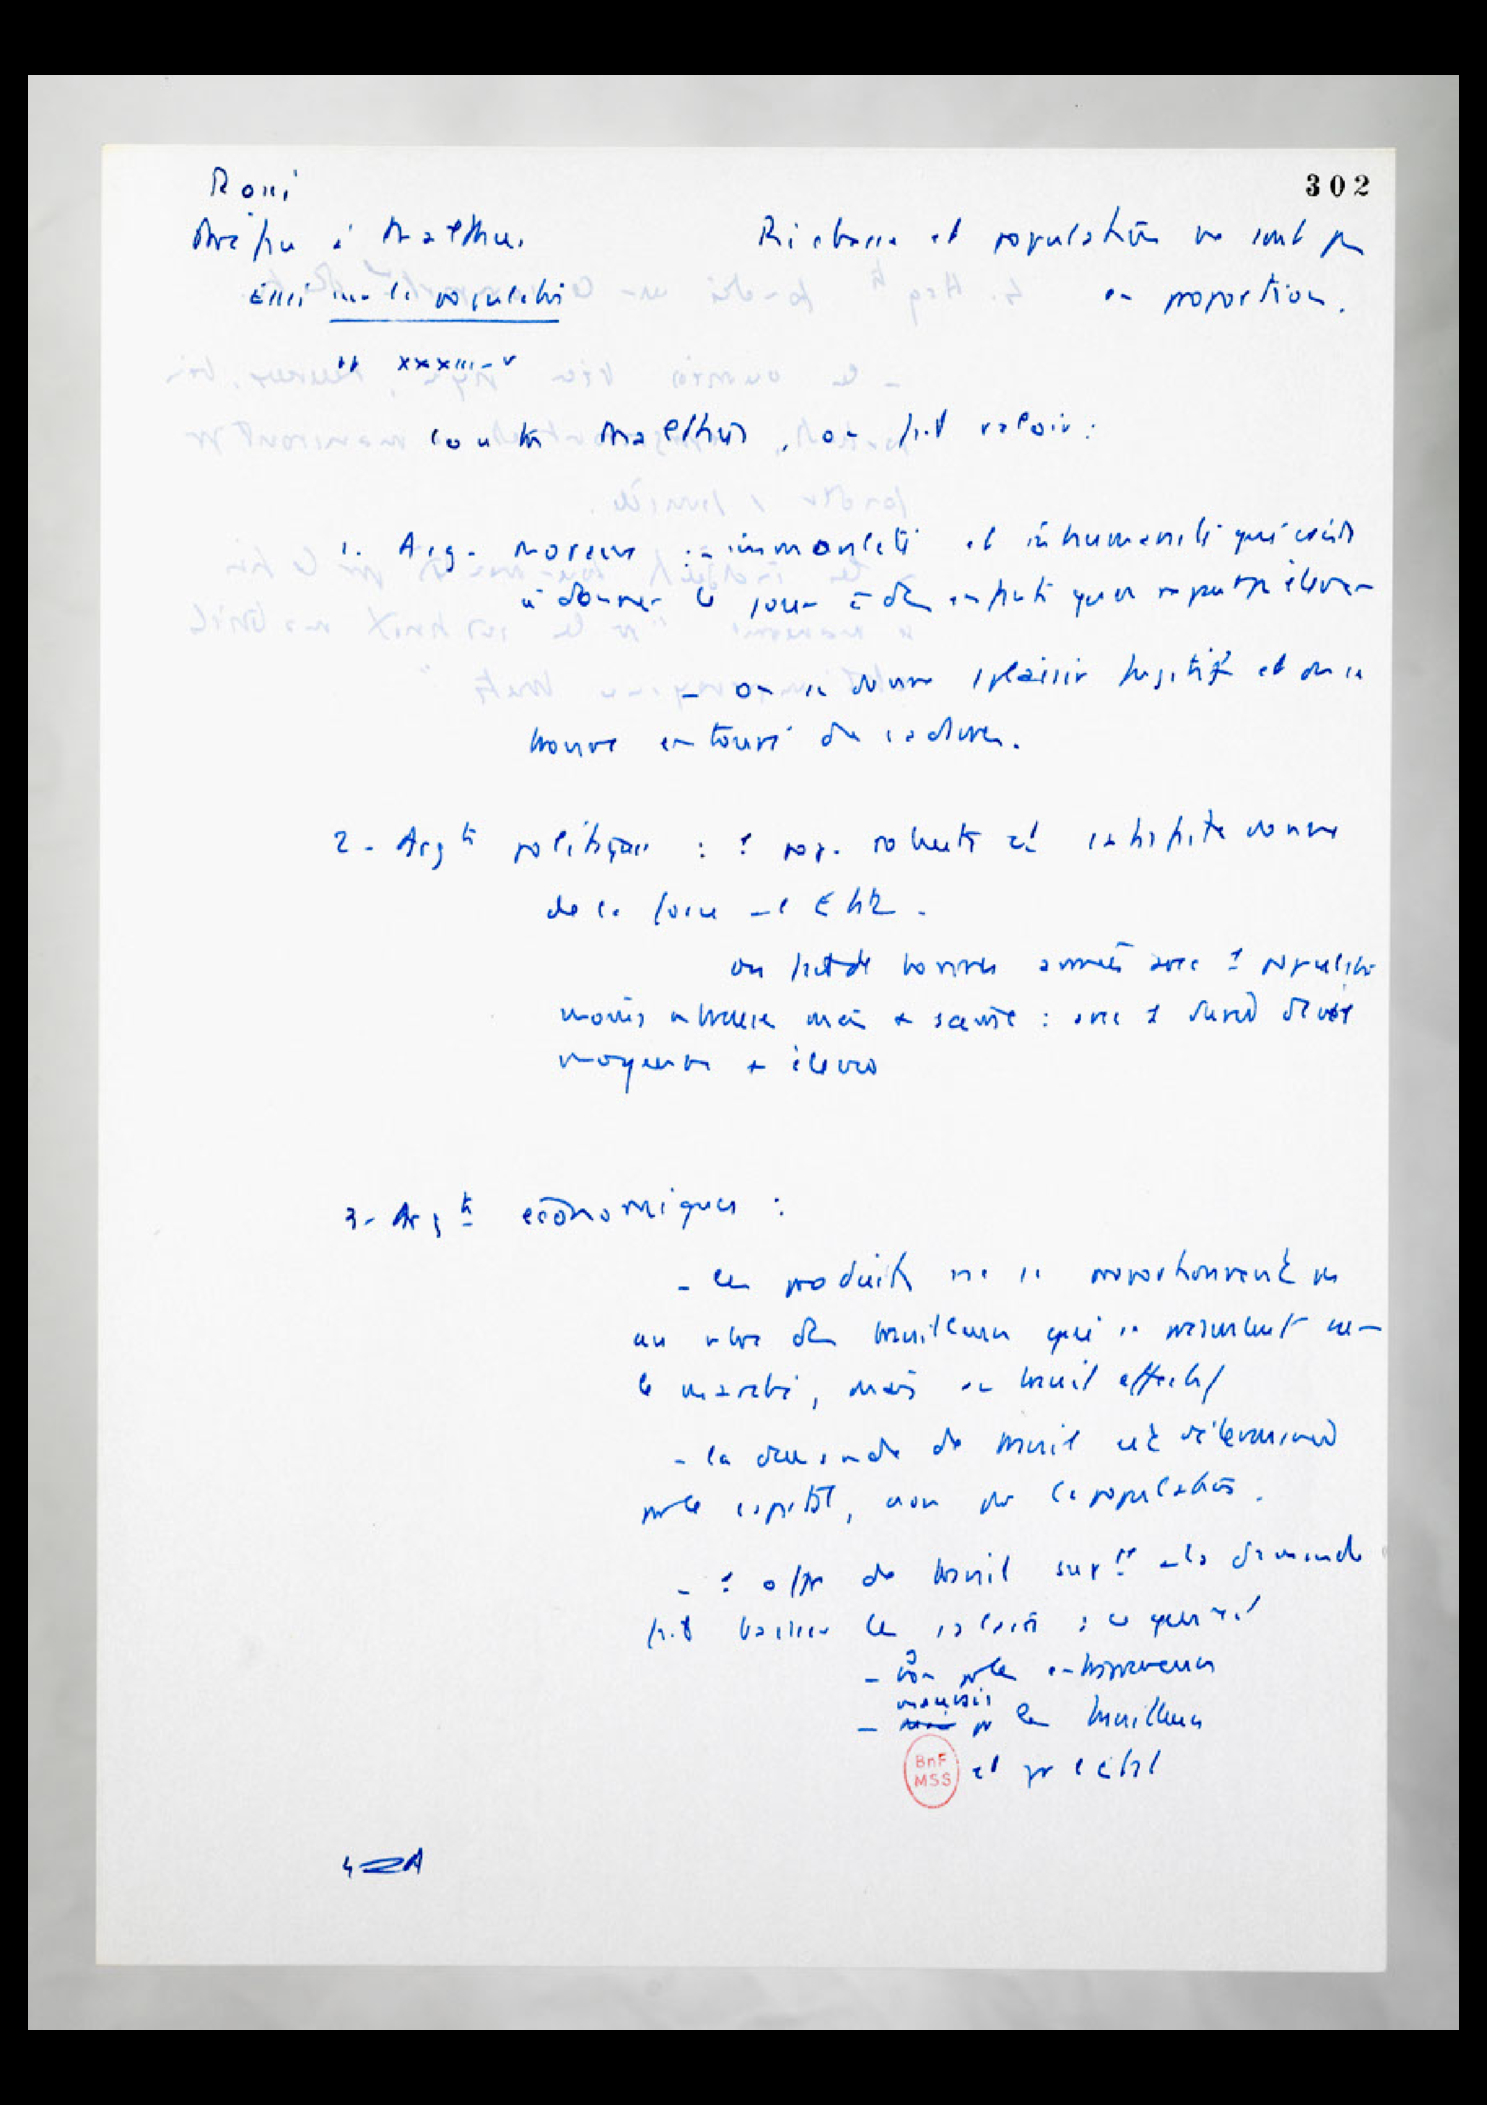 302
Rossi
Préface à Malthus.
Essai sur la population
p XXXIII-V
Richesse et population ne sont pas
en proportion.
Contre Malthus, on fait valoir :
1. Arg. moraux : - immoralité et inhumanité qui consiste
à donner le jour à des enfants qu'on ne peut pas élever
- on se donne 1 plaisir fugitif et on se
trouve entouré de cadavres.
2 - Argts politiques : 1 pop. robuste et satisfaite donne
de la force à l'Etat.
on fait de bonnes armées avec 1 population
moins nombreuse mais + saine : avec 1 durée de vie
moyenne + élevée
3 - Argts économiques :
- les produits ne se proportionnent pas
au nbre des travailleurs qui se présentent sur
le marché, mais au travail effectif
- la demande de travail est déterminée
par le capital, non par la population.
- 1 offre de travail supre à la demande
fait baisser les salaires : ce qui est
- bon pr les entrepreneurs
mauvais
- pr les travailleurs
et pr l'état
BnF
MSS
4 A